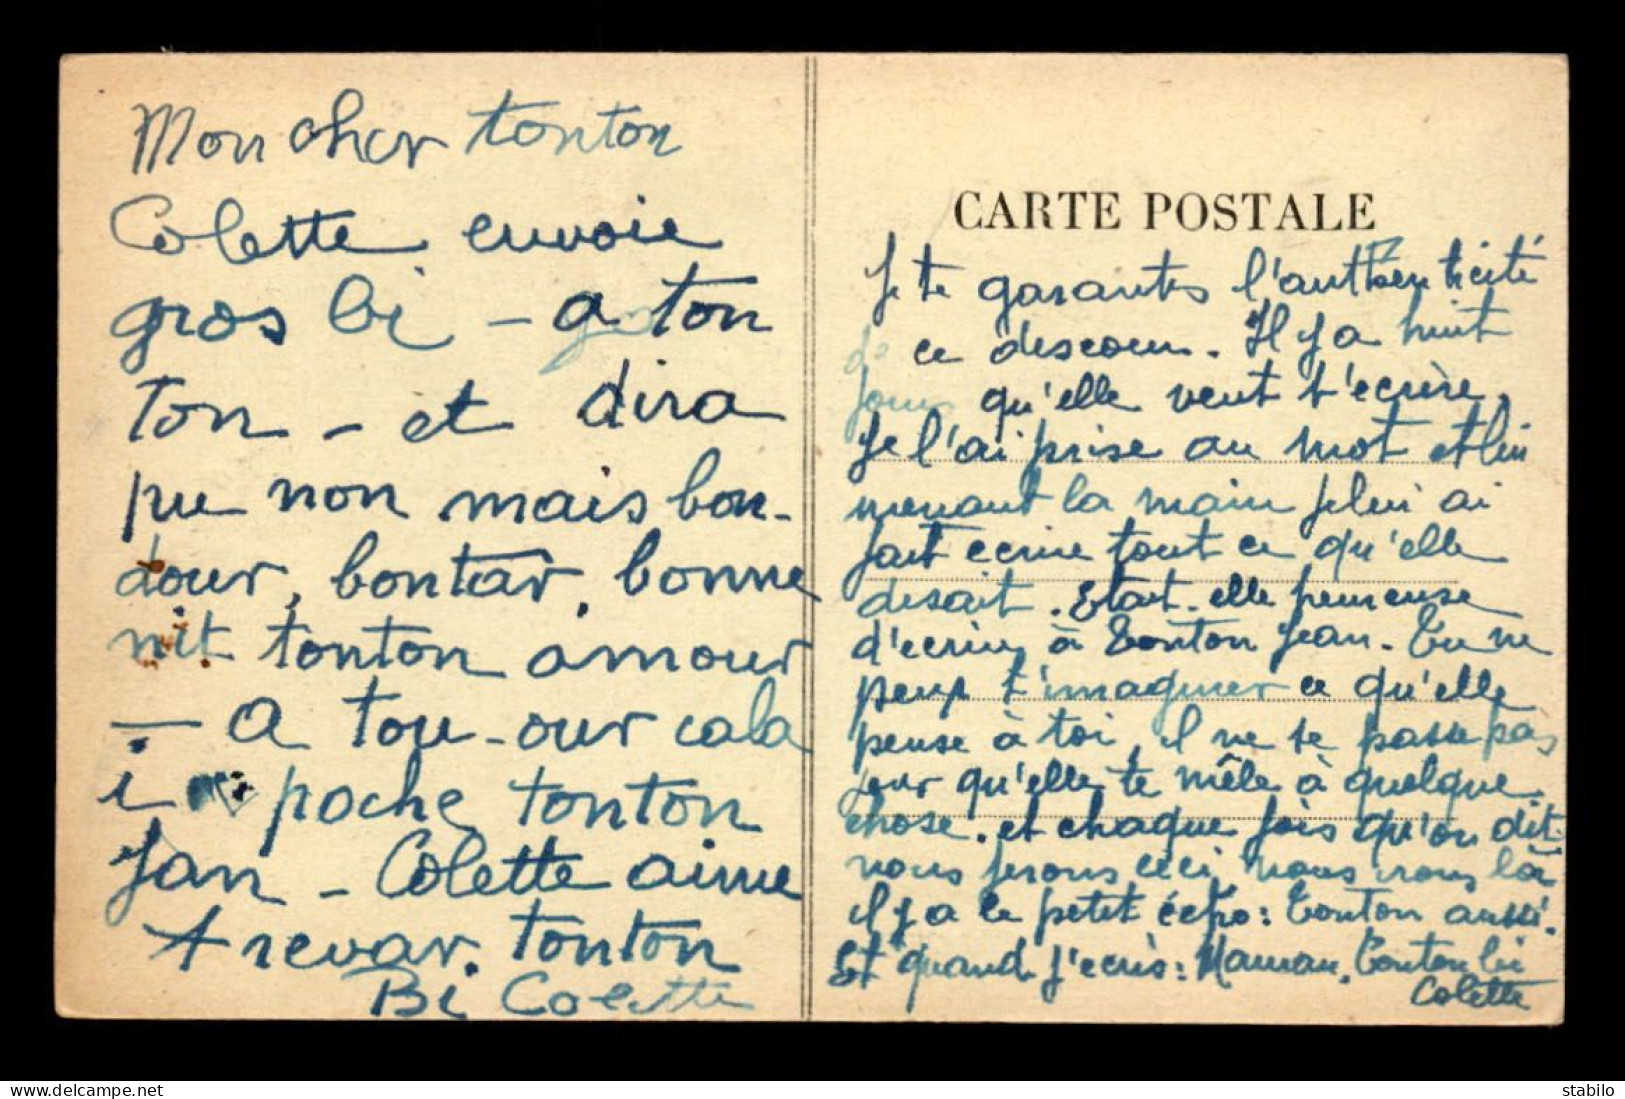 Mon cher tonton
Colette envoie
gros bi - a ton
ton - et dira
pu non mais bon-
dour, bontar, bonne
nit tonton amour
- a tou-our cala
i poche tonton
Jan - Colette aime
trevar. tonton
Bi Colette
CARTE POSTALE
Je te garantis l'authenticité
de ce discours. Il y a huit
jours qu'elle veut t'écrire.
Je l'ai prise au mot et lui
menant la main je lui ai
fait écrire tout ce qu'elle
disait. Etait-elle heureuse
d'écrire à Tonton Jean. Tu ne
peux t'imaginer ce qu'elle
pense à toi, il ne se passe pas
jour qu'elle te mêle à quelque
chose. et chaque fois qu'on dit
nous ferons ceci, nous irons là
il y a le petit écho: Tonton aussi.
Et quand j'écris: Maman, Tonton bi
Colette
stabilo
delcampe.net